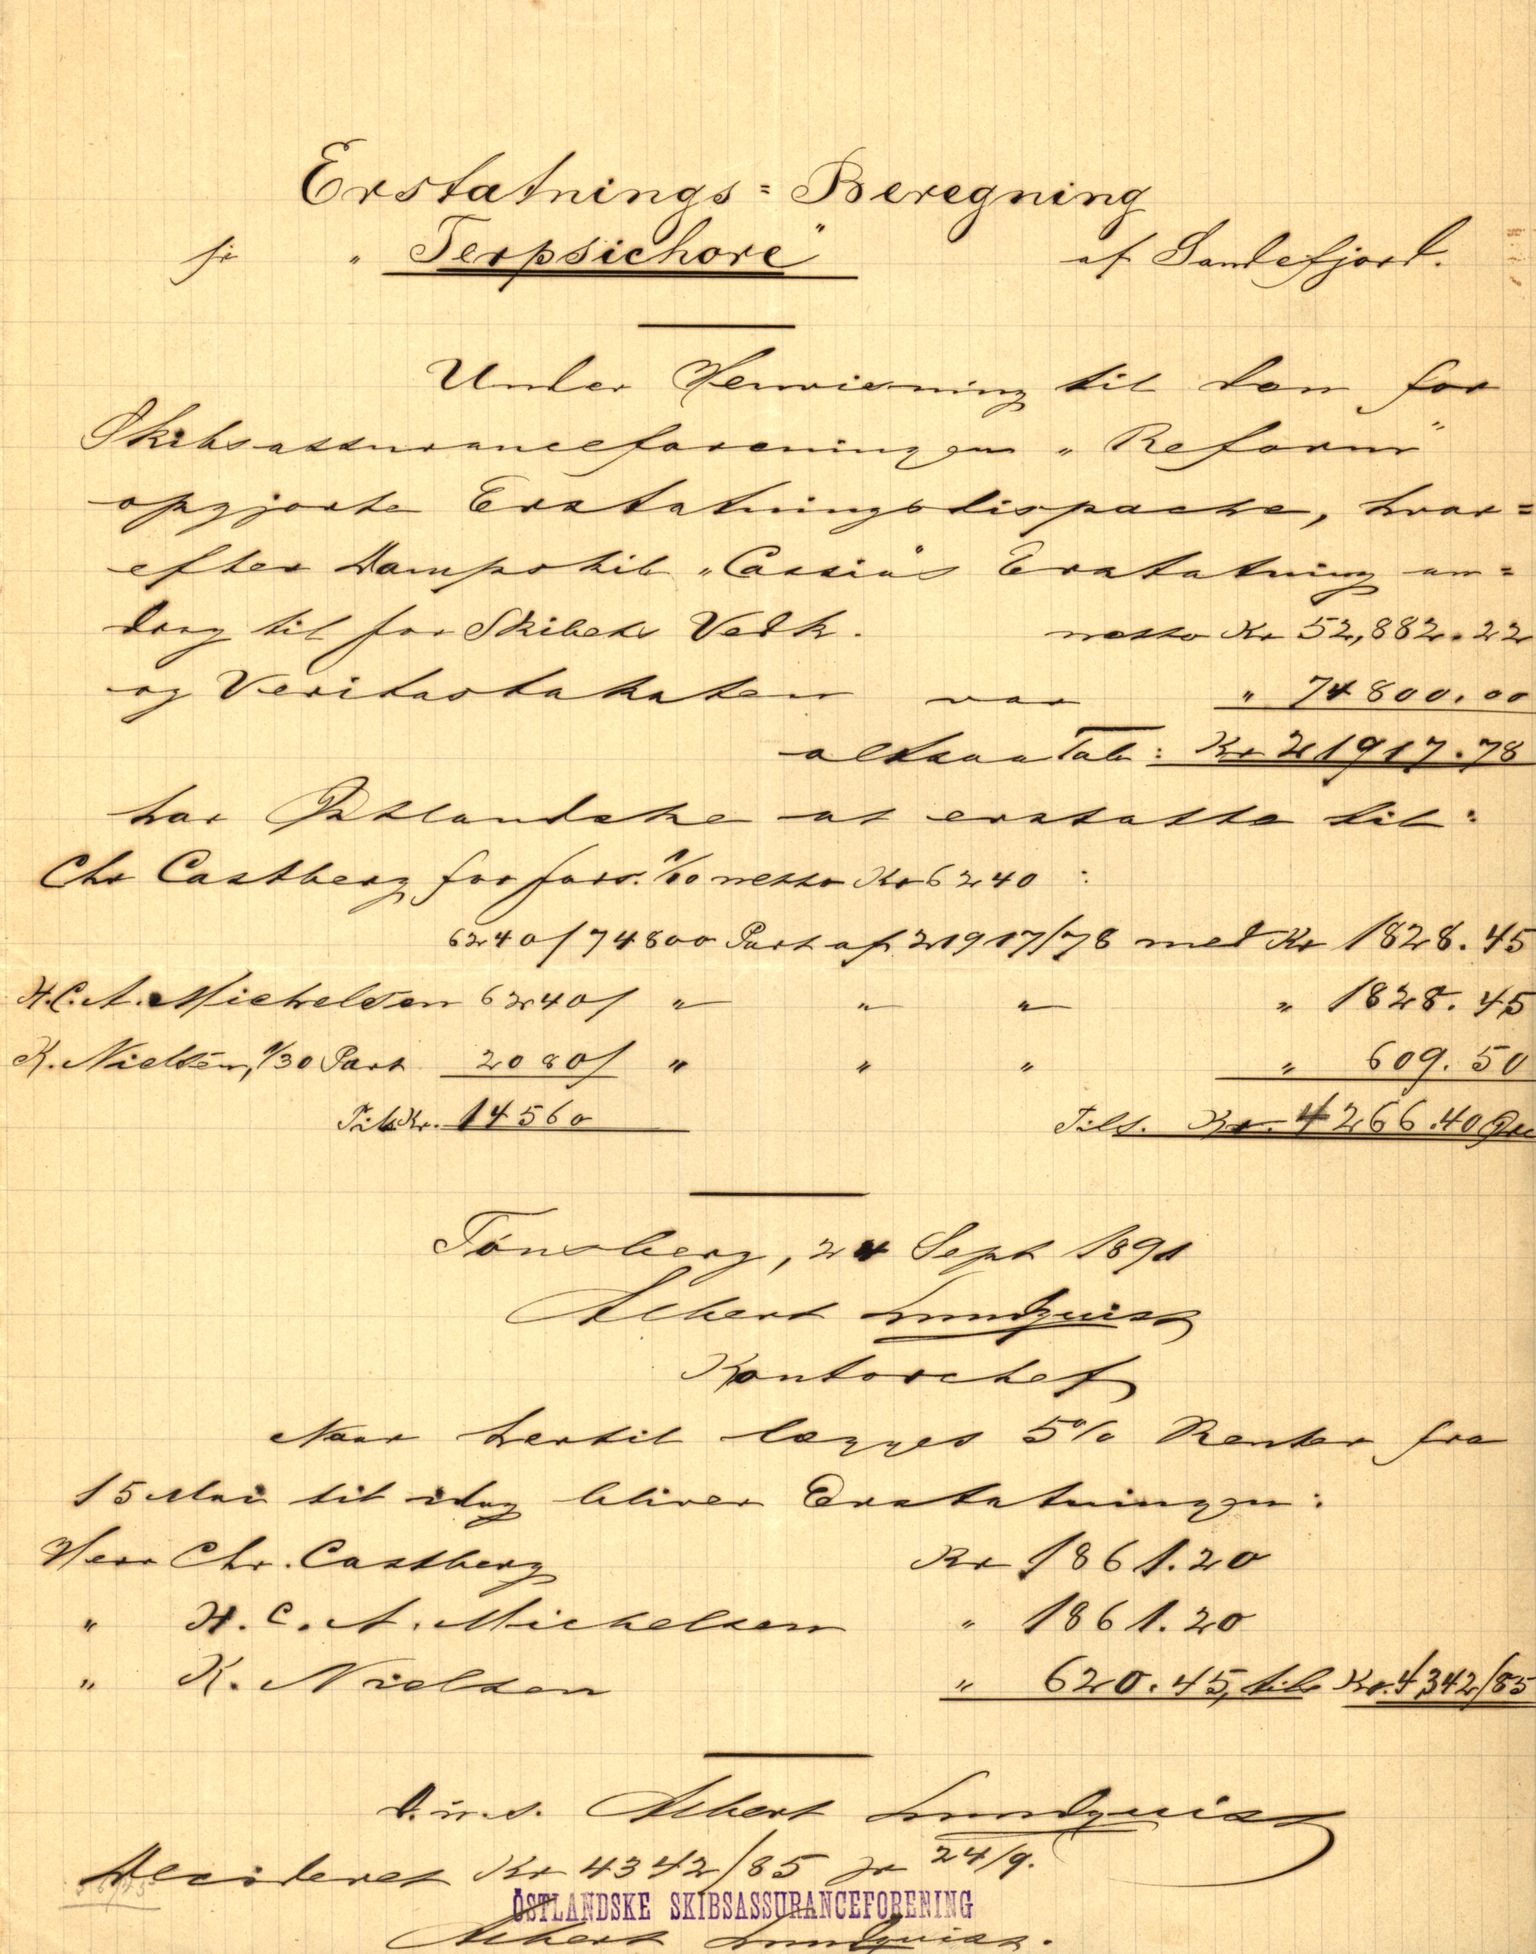 Erstatnings=Beregning
for "Terpsichore" af Sandefjord.
Under Henvisning til den for
Skibsassuranceforeningen "Reform"
opgjorte Erstatningsdispache, hvor=
efter Dampskib "Cassius" Erstatning an=
drog til for Skibets Vedk. netto Kr 52,882.22
og Veritastaksten var " 74800.00
altsaa Tab: Kr 21917.78
har Østlandske at erstatte til:
Chr Castberg for fors. 1/10 netto Kr 6240:
6240/74800 Part af 21917/78 med Kr 1828.45
H.C.A. Michelsen 6240/ " " " " 1828.45
K. Nielsen, 1/30 Part 2080/ " " " " 609.50
Tils Kr. 14560 Tils. Kr. 4266.40 Øre
Tønsberg, 24 Sept 1891
Albert Lundquist
Kontorchef
Naar hertil lægges 5% Renter fra
15 Mai til idag bliver Erstatningen:
Herr Chr. Castberg Kr 1861.20
" H. C. A. Michelsen " 1861.20
" K. Nielsen " 620.45, tils Kr. 4342/85
D. u. s. Albert Lundquist
Decideret Kr 4342/85 pr 24/9.
ÖSTLANDSKE SKIBSASSURANCEFORENING
Albert Lundquist.